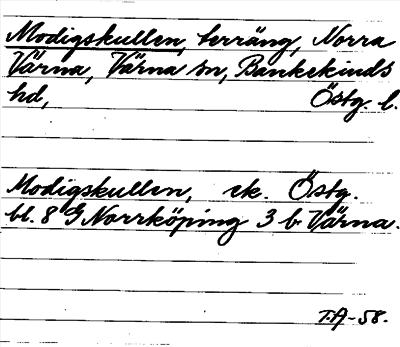 Modigskullen, terräng, Norra
Värna, Värna sn, Bankekinds
hd, Östg. l.
Modigskullen, ek. Östg.
bl. 8 G Norrköping 3 b Värna.
T.A-58.